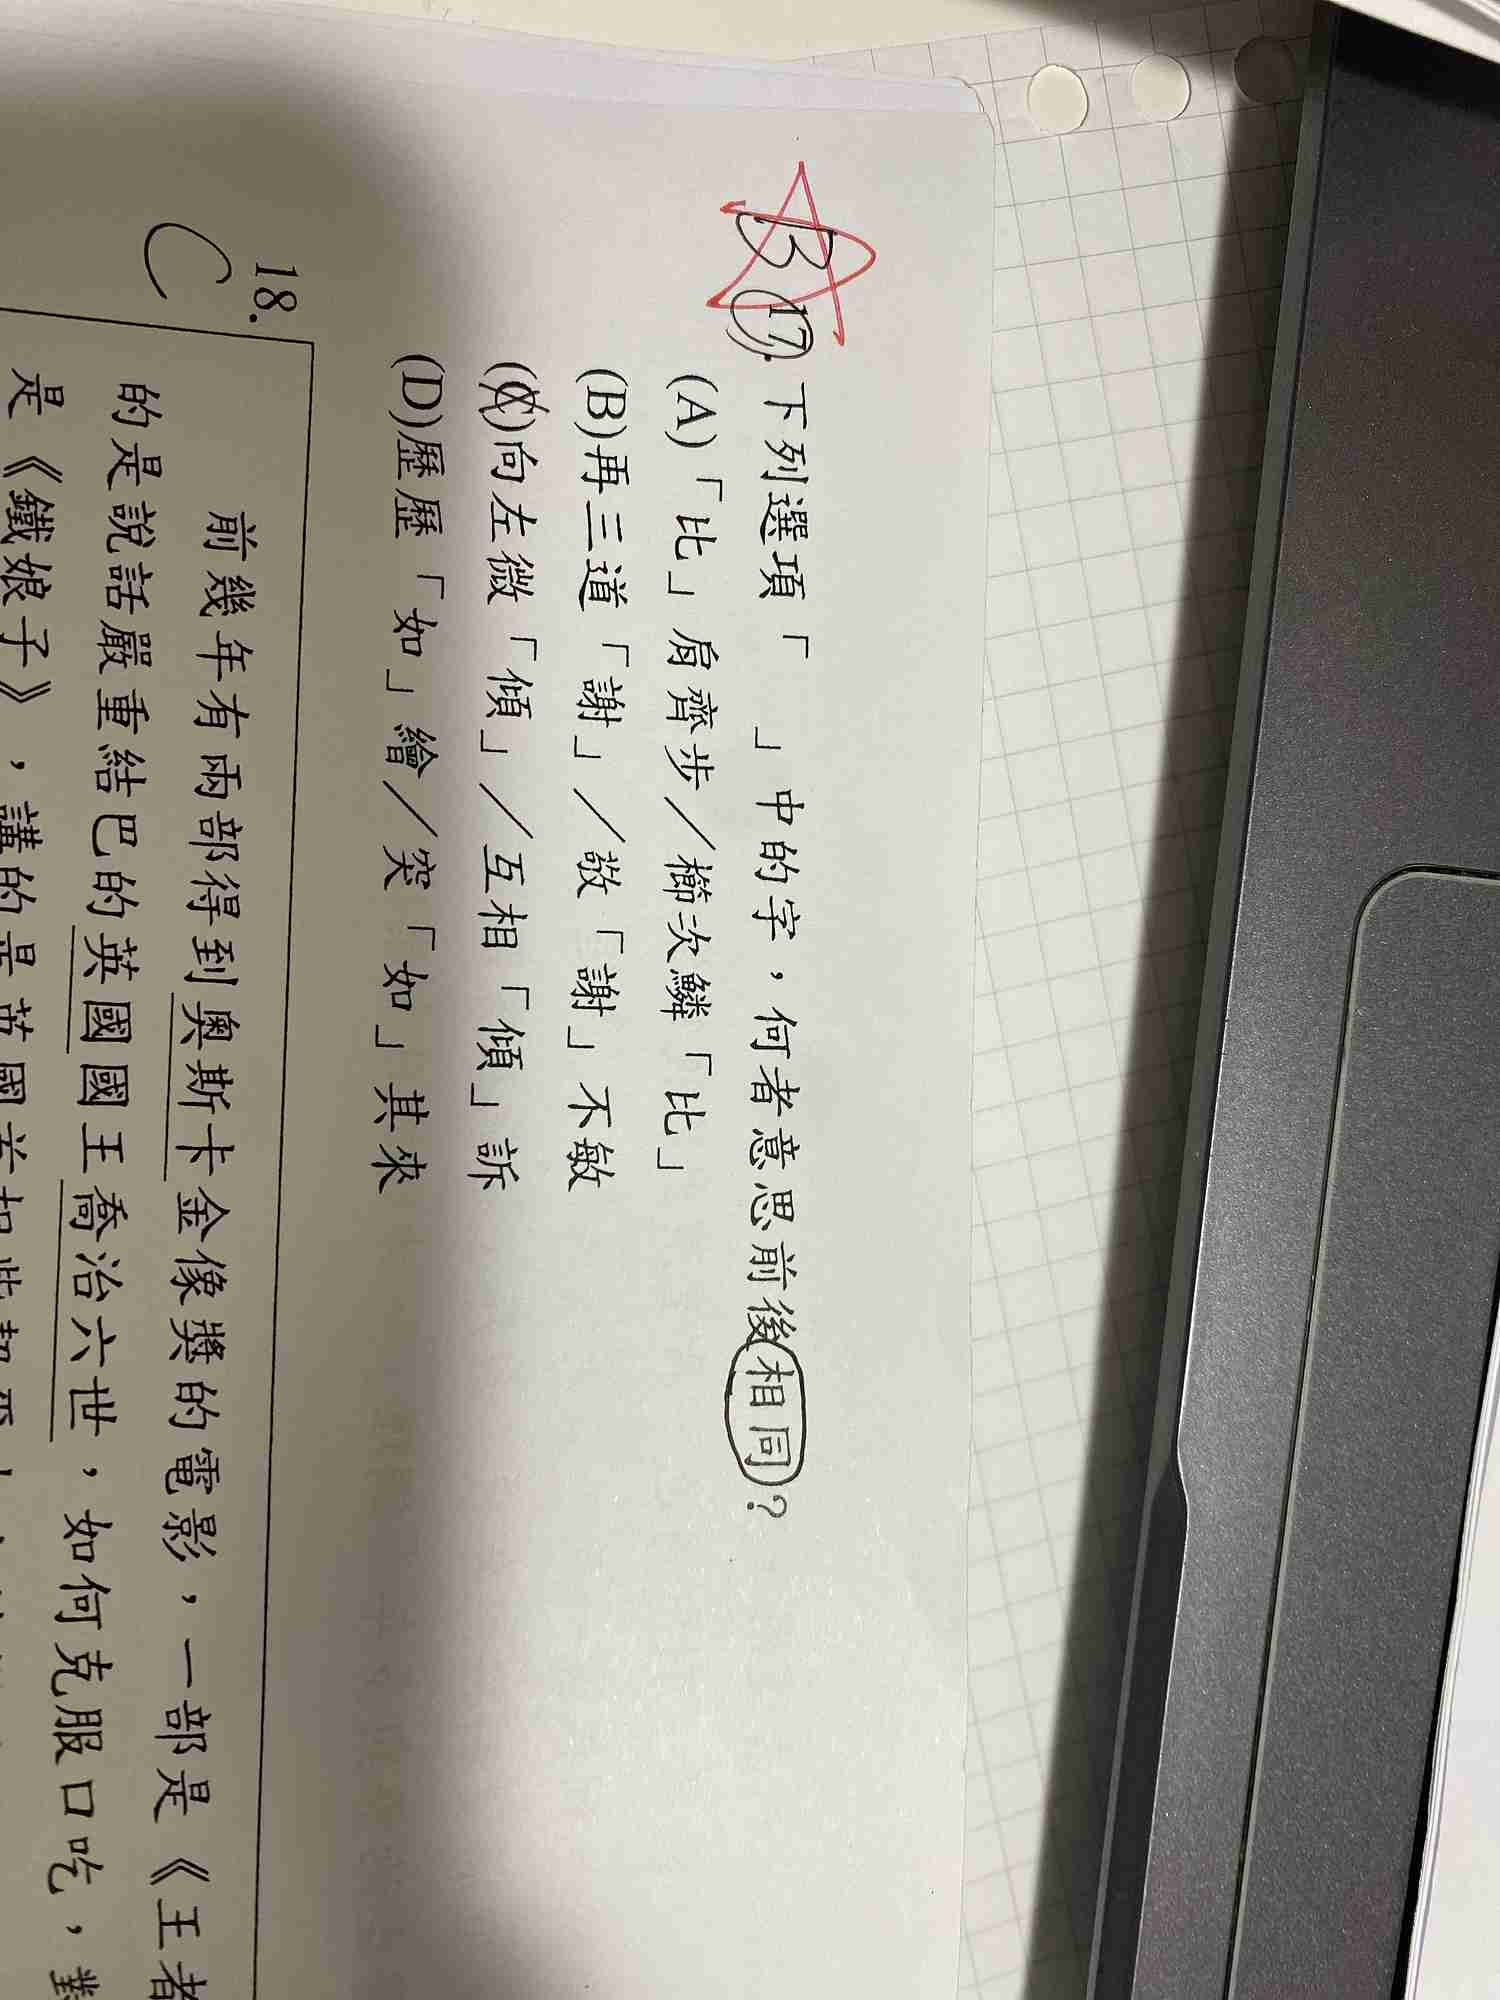 B 17. 下列選項「 」中的字，何者意思前後相同？
(A)「比」肩齊步／櫛次鱗「比」
(B)再三道「謝」／敬「謝」不敏
(C)向左微「傾」／互相「傾」訴
(D)歷歷「如」繪／突「如」其來
C 18.
前幾年有兩部得到奧斯卡金像獎的電影，一部是《王者
的是說話嚴重結巴的英國國王喬治六世，如何克服口吃，對
是《鐵娘子》，講的是英國首相柴契爾